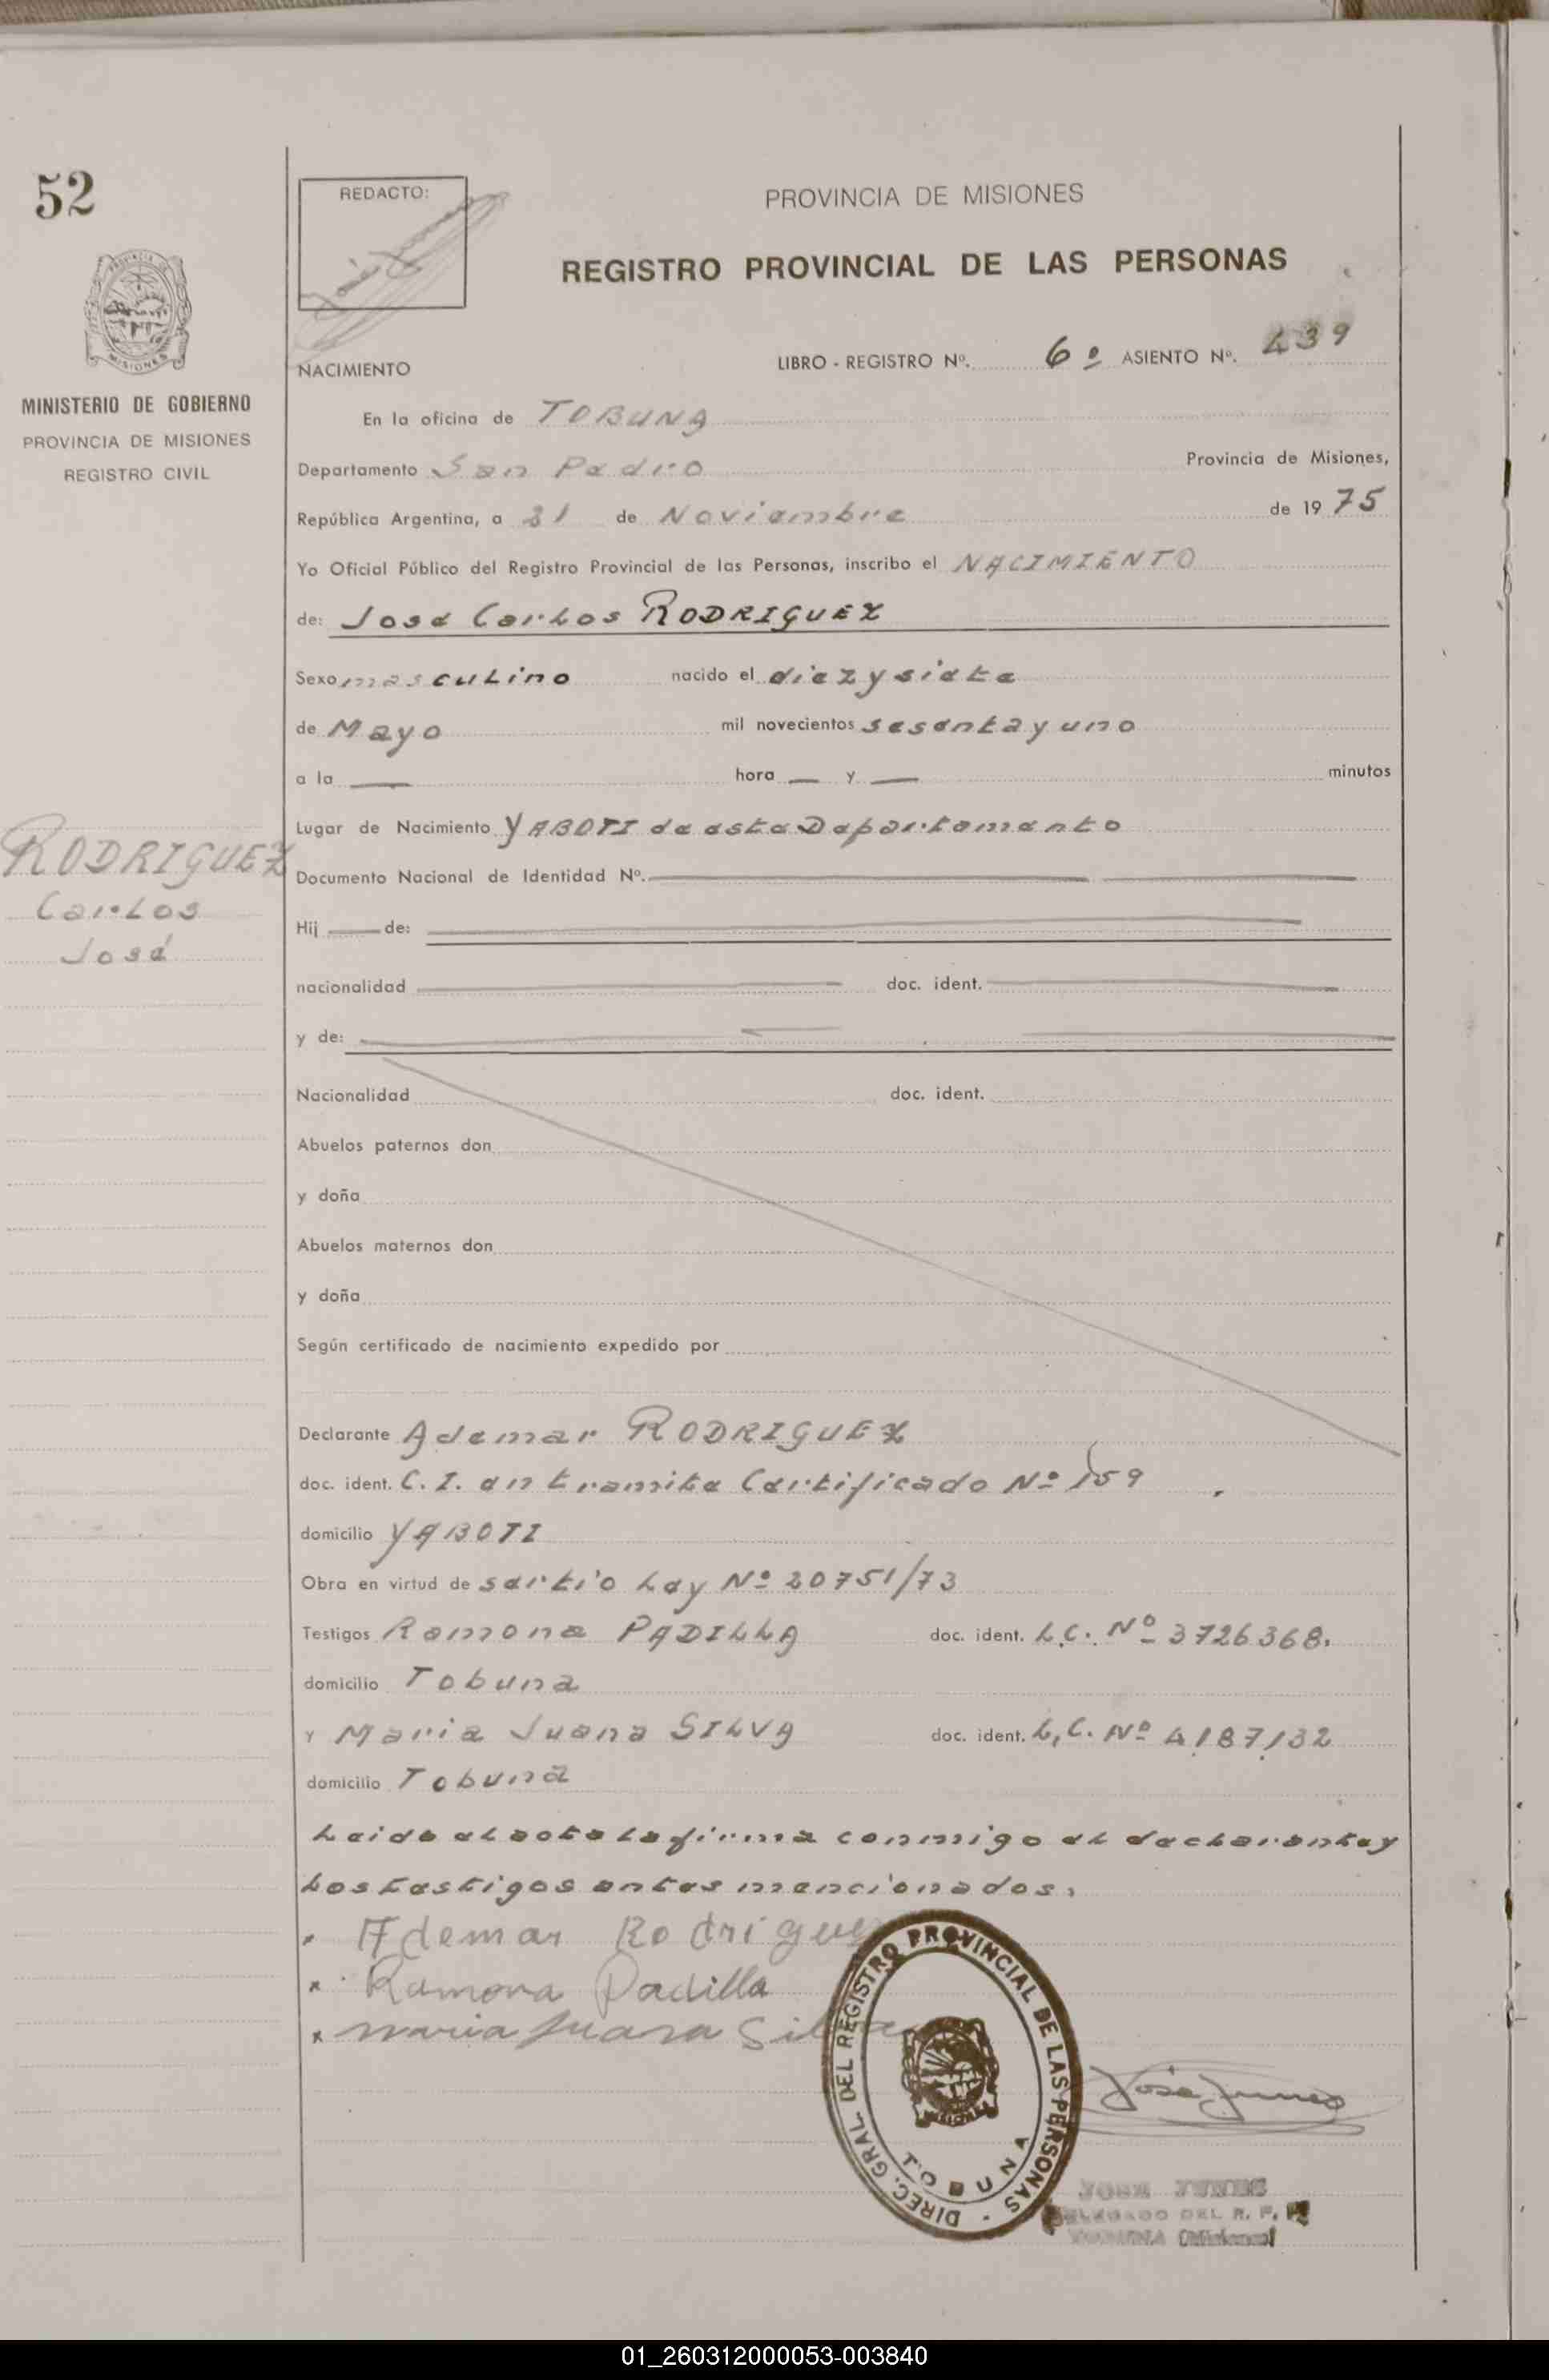 52
REDACTO:
PROVINCIA DE MISIONES
REGISTRO PROVINCIAL DE LAS PERSONAS
MISIONES
MINISTERIO DE GOBIERNO
PROVINCIA DE MISIONES
REGISTRO CIVIL
NACIMIENTO LIBRO - REGISTRO Nº. 6º ASIENTO Nº. 439
En la oficina de TOBUNA
Departamento San Pedro Provincia de Misiones,
República Argentina, a 21 de Noviembre de 1975
Yo Oficial Público del Registro Provincial de las Personas, inscribo el NACIMIENTO
de: José Carlos RODRIGUEZ
Sexo masculino nacido el diez y siete
de Mayo mil novecientos sesenta y uno
a la — hora — y — minutos
Lugar de Nacimiento YABOTI de este Departamento
RODRIGUEZ
Carlos
José
Documento Nacional de Identidad Nº.
Hij — de:
nacionalidad doc. ident.
y de:
Nacionalidad doc. ident.
Abuelos paternos don
y doña
Abuelos maternos don
y doña
Según certificado de nacimiento expedido por
Declarante Ademar RODRIGUEZ
doc. ident. C. I. en tramite Certificado Nº 159
domicilio YABOTI
Obra en virtud de Ley Nº 20751/73
Testigos Ramona PADILLA doc. ident. L.C. Nº 3726368.
domicilio Tobuna
y Maria Juana SILVA doc. ident. L.C. Nº 4187132
domicilio Tobuna
Leida el acta la firma conmigo el declarante y
los testigos antes mencionados.
x Ademar Rodriguez
x Ramona Padilla
x Maria Juana Silva
DIREC. GRAL. DEL REGISTRO PROVINCIAL DE LAS PERSONAS
TOBUNA
JOSE JUNES
DELEGADO DEL R. P. P.
TOBUNA (Misiones)
01_260312000053-003840